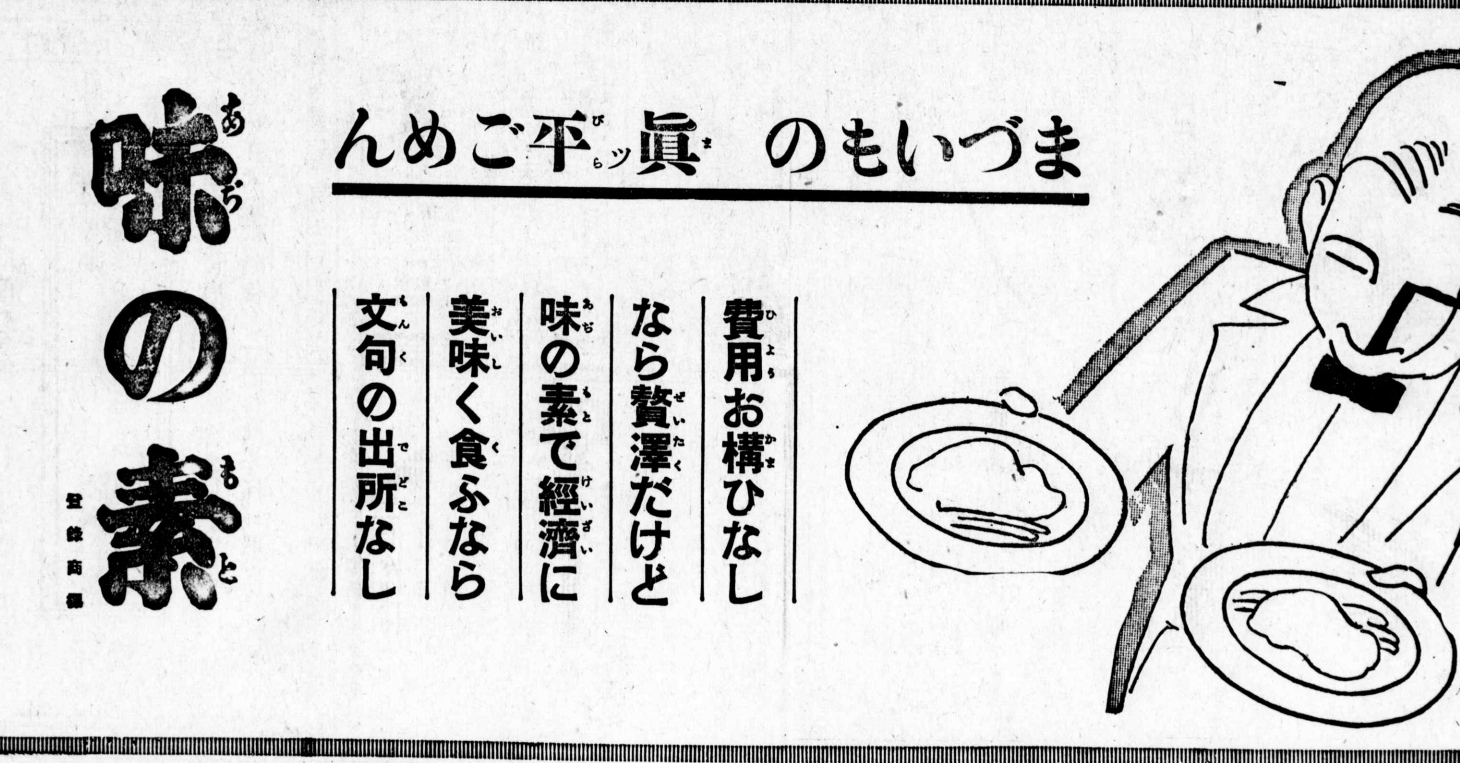 まづいもの 眞ッ平ごめん
費用お構ひなし
なら贅澤だけど
味の素で經濟に
美味く食ふなら
文句の出所なし
味の素
登錄商標